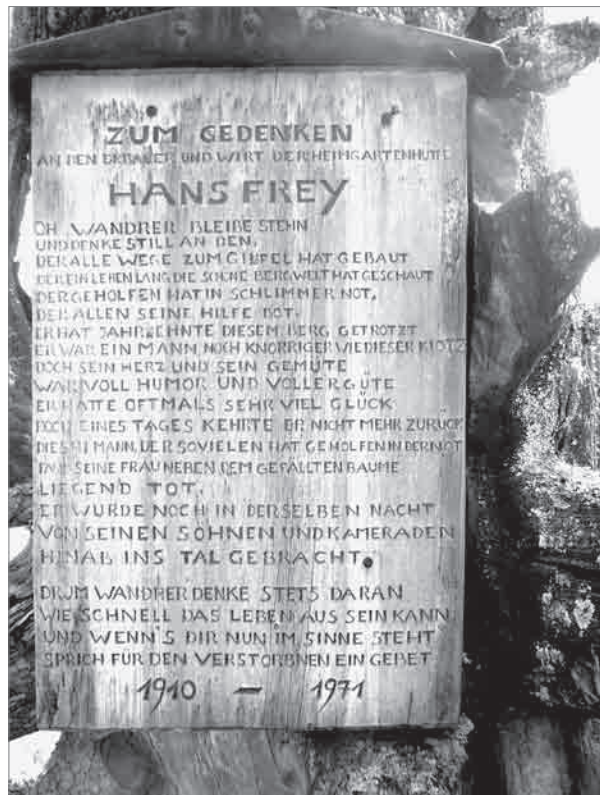 ZUM GEDENKEN
AN DEN ERBAUER UND WIRT DER HEIMGARTENHÜTTE
HANS FREY
OH WANDRER BLEIBE STEHN
UND DENKE STILL AN DEN,
DER ALLE WEGE ZUM GIPFEL HAT GEBAUT
DER EIN LEBEN LANG DIE SCHÖNE BERGWELT HAT GESCHAUT
DER GEHOLFEN HAT IN SCHLIMMER NOT,
DER ALLEN SEINE HILFE BOT.
ER HAT JAHRZEHNTE DIESEM BERG GETROTZT
ER WAR EIN MANN NOCH KNORRIGER WIE DIESER KLOTZ
DOCH SEIN HERZ UND SEIN GEMÜTE
WAR VOLL HUMOR UND VOLLER GÜTE
ER HATTE OFTMALS SEHR VIEL GLÜCK
DOCH EINES TAGES KEHRTE ER NICHT MEHR ZURÜCK
DIESEN MANN, DER SOVIELEN HAT GEHOLFEN IN DER NOT
FAND SEINE FRAU NEBEN DEM GEFÄLLTEN BAUME
LIEGEND TOT.
ER WURDE NOCH IN DERSELBEN NACHT
VON SEINEN SÖHNEN UND KAMERADEN
HINAB INS TAL GEBRACHT.
DRUM WANDRER DENKE STETS DARAN
WIE SCHNELL DAS LEBEN AUS SEIN KANN
UND WENN'S DIR NUN IM SINNE STEHT
SPRICH FÜR DEN VERSTORBNEN EIN GEBET
1910 – 1971